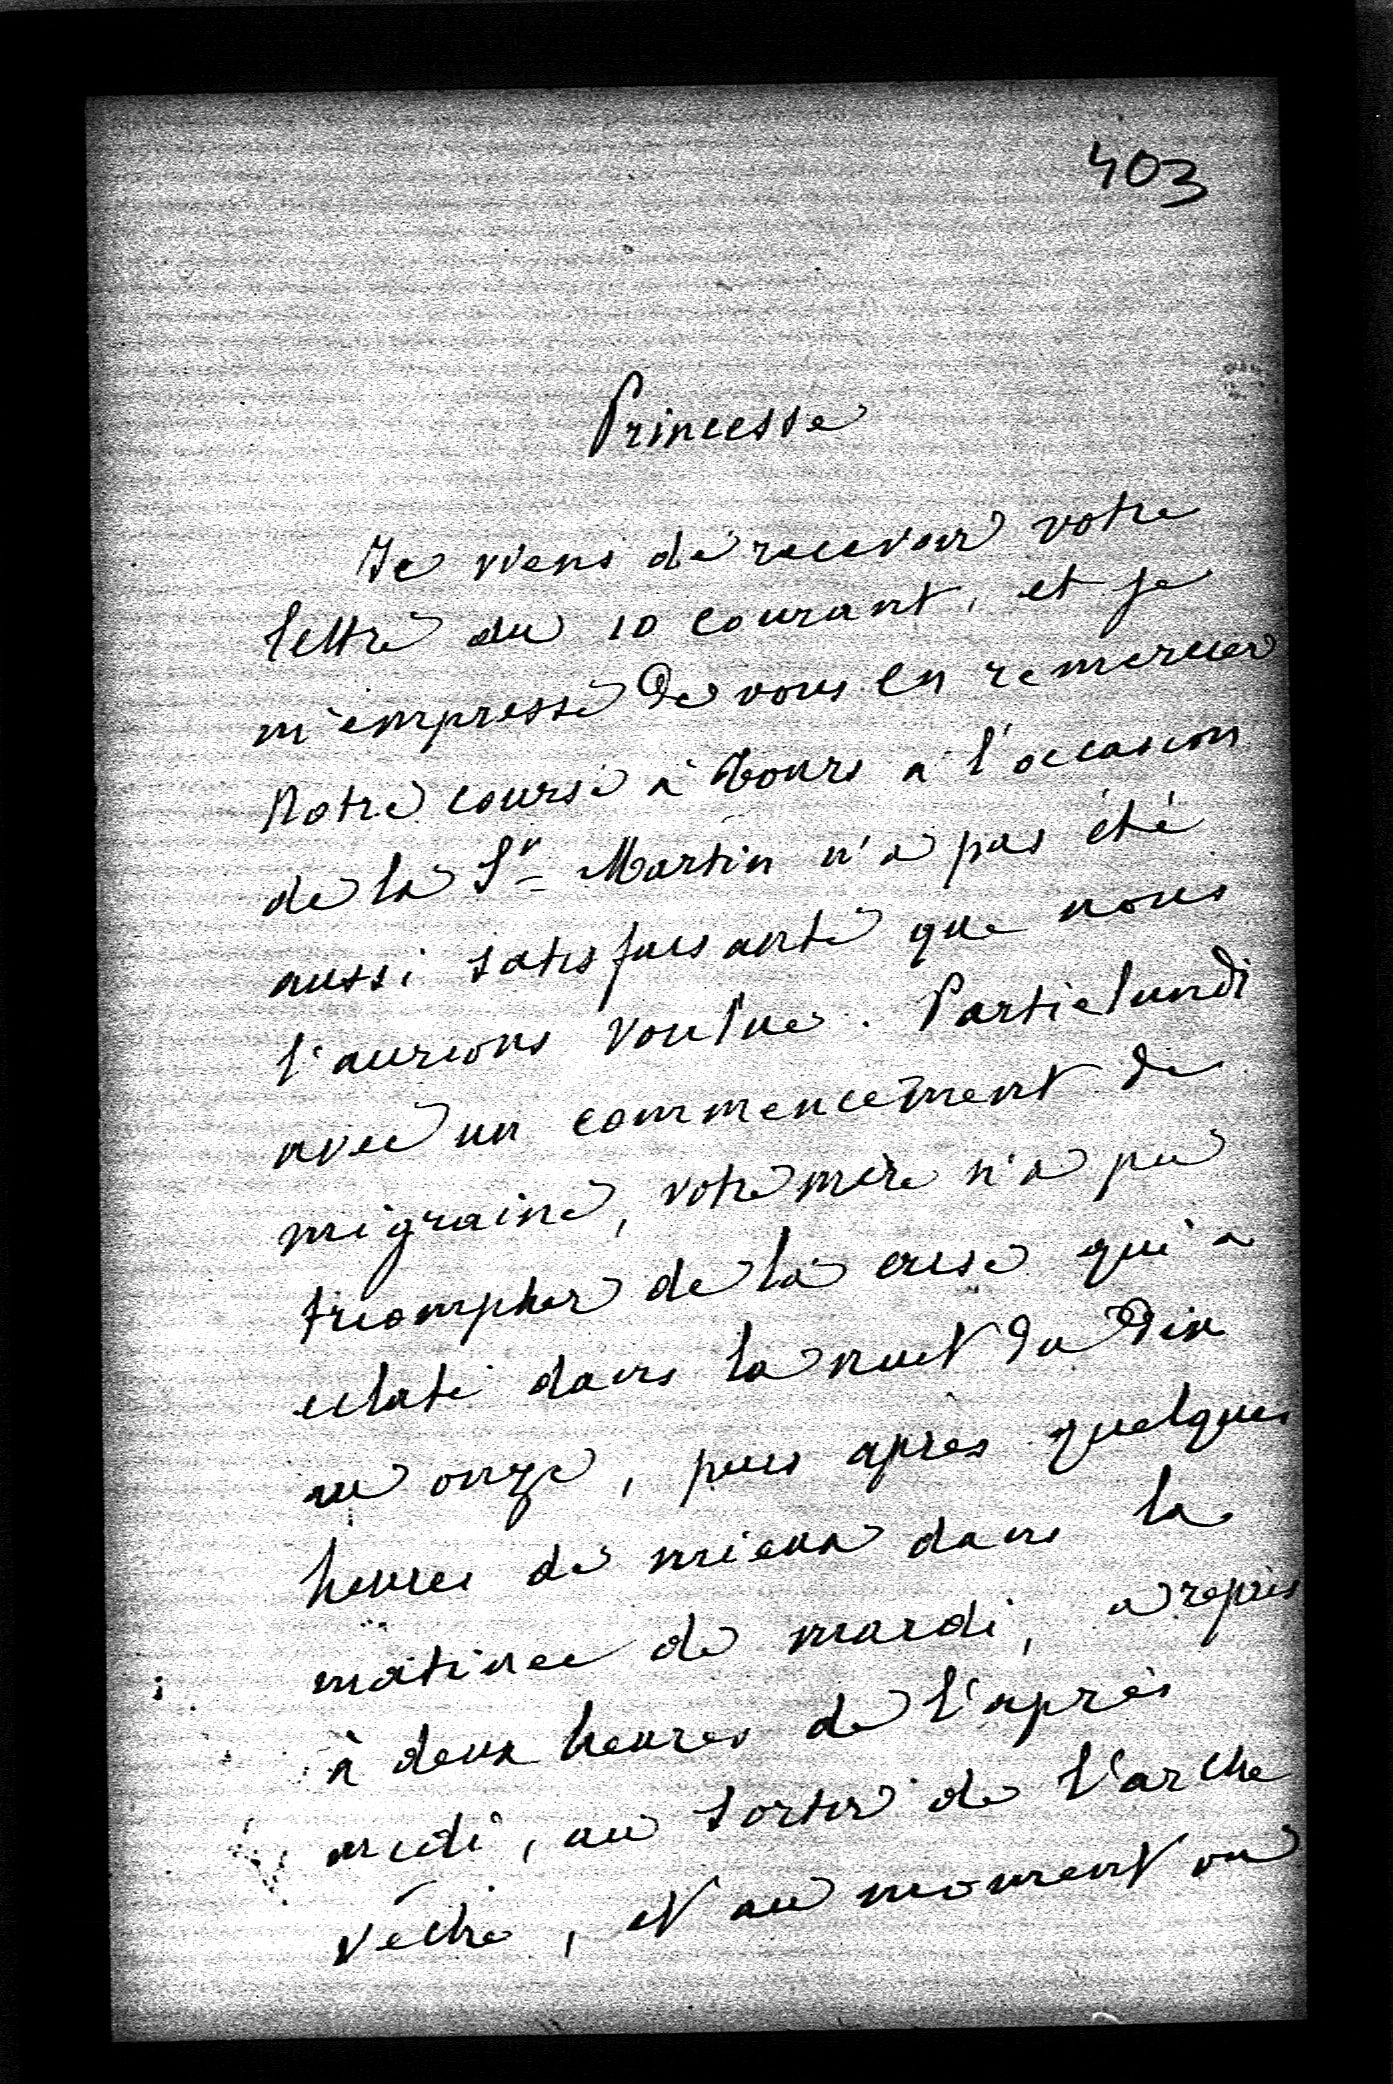 403
Princesse
Je viens de recevoir votre
lettre du 10 courant, et je
m'empresse de vous en remercier
Notre course à Tours à l'occasion
de la St Martin n'a pas été
aussi satisfaisante que nous
l'aurions voulue. Partie lundi
avec un commencement de
migraine, votre mère n'a pu
triompher de la crise qui a
eclaté dans la nuit du dix
au onze, puis après quelques
heures de mieux dans la
matinée de mardi, a repris
à deux heures de l'après
midi, au sortir de l'arche
vêché, et au moment ou